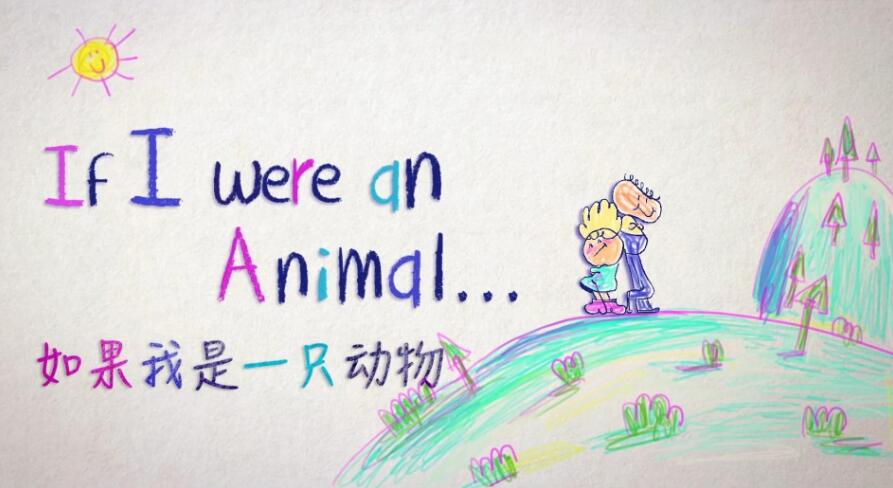 If I were an
Animal...
如果我是一只动物